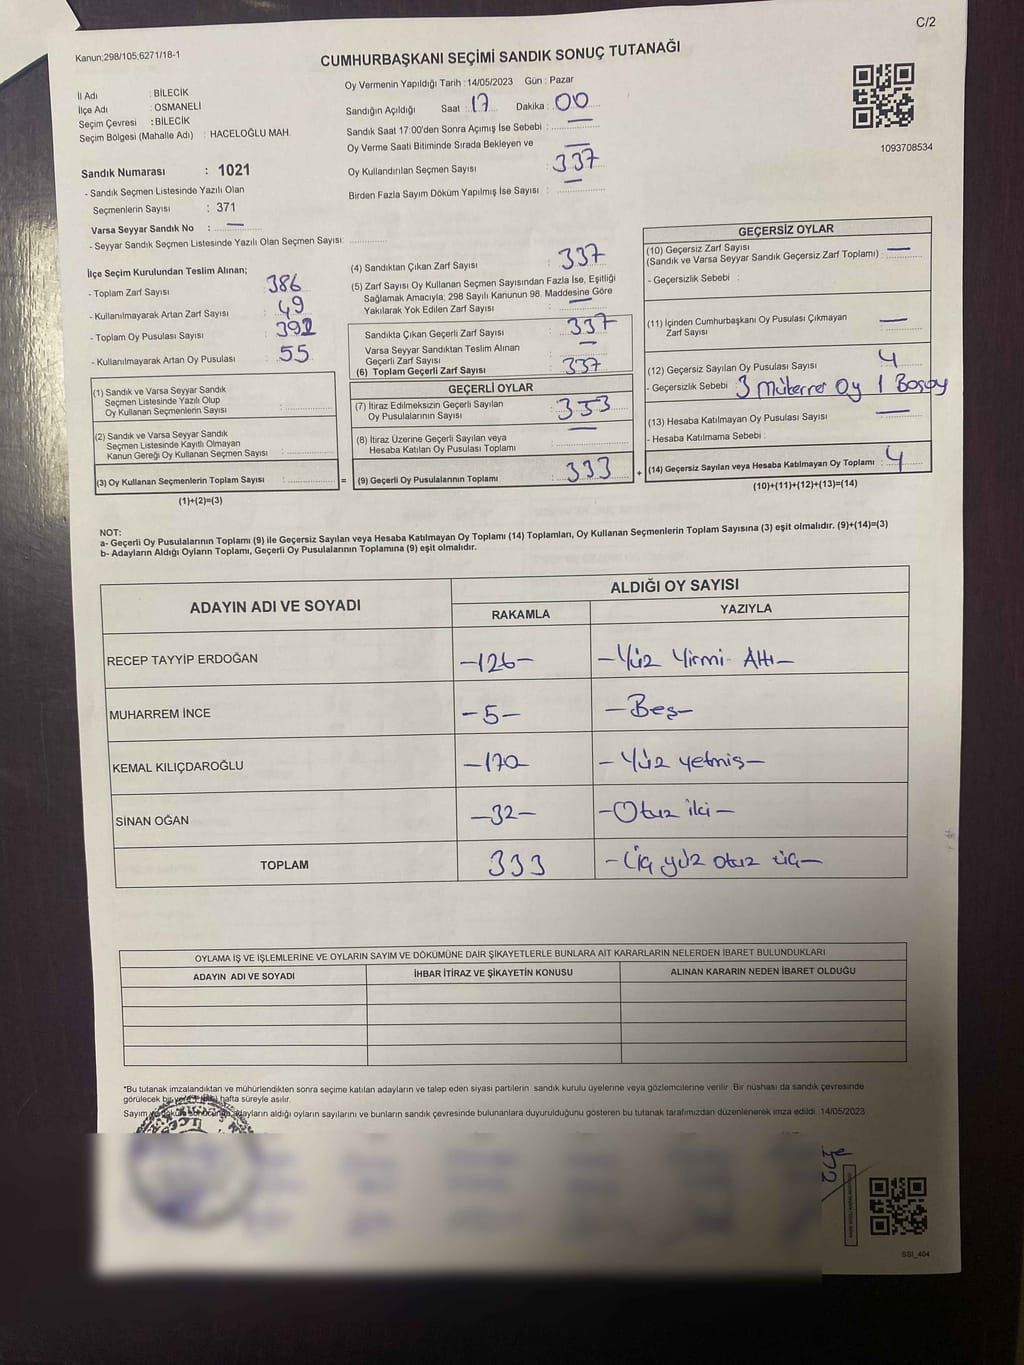 C/2
Kanun;298/105;6271/18-1
CUMHURBAŞKANI SEÇİMİ SANDIK SONUÇ TUTANAĞI
İl Adı : BİLECİK
İlçe Adı : OSMANELİ
Seçim Çevresi : BİLECİK
Seçim Bölgesi (Mahalle Adı) : HACELOĞLU MAH.
Oy Vermenin Yapıldığı Tarih : 14/05/2023 Gün : Pazar
Sandığın Açıldığı Saat : 17 Dakika : 00
Sandık Saat 17:00'den Sonra Açımış İse Sebebi : —
Oy Verme Saati Bitiminde Sırada Bekleyen ve —
Oy Kullandırılan Seçmen Sayısı : 337
Birden Fazla Sayım Döküm Yapılmış İse Sayısı : —
1093708534
Sandık Numarası : 1021
- Sandık Seçmen Listesinde Yazılı Olan
Seçmenlerin Sayısı : 371
Varsa Seyyar Sandık No : —
- Seyyar Sandık Seçmen Listesinde Yazılı Olan Seçmen Sayısı:
İlçe Seçim Kurulundan Teslim Alınan;
- Toplam Zarf Sayısı : 386
- Kullanılmayarak Artan Zarf Sayısı : 49
- Toplam Oy Pusulası Sayısı : 392
- Kullanılmayarak Artan Oy Pusulası : 55
(1) Sandık ve Varsa Seyyar Sandık
Seçmen Listesinde Yazılı Olup
Oy Kullanan Seçmenlerin Sayısı :
(2) Sandık ve Varsa Seyyar Sandık
Seçmen Listesinde Kayıtlı Olmayan
Kanun Gereği Oy Kullanan Seçmen Sayısı :
(3) Oy Kullanan Seçmenlerin Toplam Sayısı :
(1)+(2)=(3)
(4) Sandıktan Çıkan Zarf Sayısı : 337
(5) Zarf Sayısı Oy Kullanan Seçmen Sayısından Fazla İse, Eşitliği
Sağlamak Amacıyla; 298 Sayılı Kanunun 98. Maddesine Göre
Yakılarak Yok Edilen Zarf Sayısı : —
Sandıkta Çıkan Geçerli Zarf Sayısı : 337
Varsa Seyyar Sandıktan Teslim Alınan
Geçerli Zarf Sayısı : —
(6) Toplam Geçerli Zarf Sayısı : 337
GEÇERLİ OYLAR
(7) İtiraz Edilmeksizin Geçerli Sayılan
Oy Pusulalarının Sayısı : 333
(8) İtiraz Üzerine Geçerli Sayılan veya
Hesaba Katılan Oy Pusulası Toplamı : —
= (9) Geçerli Oy Pusulalarının Toplamı : 333
GEÇERSİZ OYLAR
(10) Geçersiz Zarf Sayısı
(Sandık ve Varsa Seyyar Sandık Geçersiz Zarf Toplamı) : —
- Geçersizlik Sebebi :
(11) İçinden Cumhurbaşkanı Oy Pusulası Çıkmayan
Zarf Sayısı : —
(12) Geçersiz Sayılan Oy Pusulası Sayısı : 4
- Geçersizlik Sebebi : 3 Müterrer Oy 1 Boşoy
(13) Hesaba Katılmayan Oy Pusulası Sayısı : —
- Hesaba Katılmama Sebebi :
+ (14) Geçersiz Sayılan veya Hesaba Katılmayan Oy Toplamı : 4
(10)+(11)+(12)+(13)=(14)
NOT:
a- Geçerli Oy Pusulalarının Toplamı (9) ile Geçersiz Sayılan veya Hesaba Katılmayan Oy Toplamı (14) Toplamları, Oy Kullanan Seçmenlerin Toplam Sayısına (3) eşit olmalıdır. (9)+(14)=(3)
b- Adayların Aldığı Oyların Toplamı, Geçerli Oy Pusulalarının Toplamına (9) eşit olmalıdır.
ADAYIN ADI VE SOYADI
ALDIĞI OY SAYISI
RAKAMLA YAZIYLA
RECEP TAYYİP ERDOĞAN —126— —Yüz Yirmi Altı—
MUHARREM İNCE —5— —Beş—
KEMAL KILIÇDAROĞLU —170— —Yüz yetmiş—
SİNAN OĞAN —32— —Otuz iki—
TOPLAM 333 —Üç yüz otuz üç—
OYLAMA İŞ VE İŞLEMLERİNE VE OYLARIN SAYIM VE DÖKÜMÜNE DAİR ŞİKAYETLERLE BUNLARA AİT KARARLARIN NELERDEN İBARET BULUNDUKLARI
ADAYIN ADI VE SOYADI İHBAR İTİRAZ VE ŞİKAYETİN KONUSU ALINAN KARARIN NEDEN İBARET OLDUĞU
*Bu tutanak imzalandıktan ve mühürlendikten sonra seçime katılan adayların ve talep eden siyasi partilerin sandık kurulu üyelerine veya gözlemcilerine verilir. Bir nüshası da sandık çevresinde
görülecek bir hafta süreyle asılır.
Sayım adayların aldığı oyların sayılarını ve bunların sandık çevresinde bulunanlara duyurulduğunu gösteren bu tutanak tarafımızdan düzenlenerek imza edildi. 14/05/2023
SSI_404